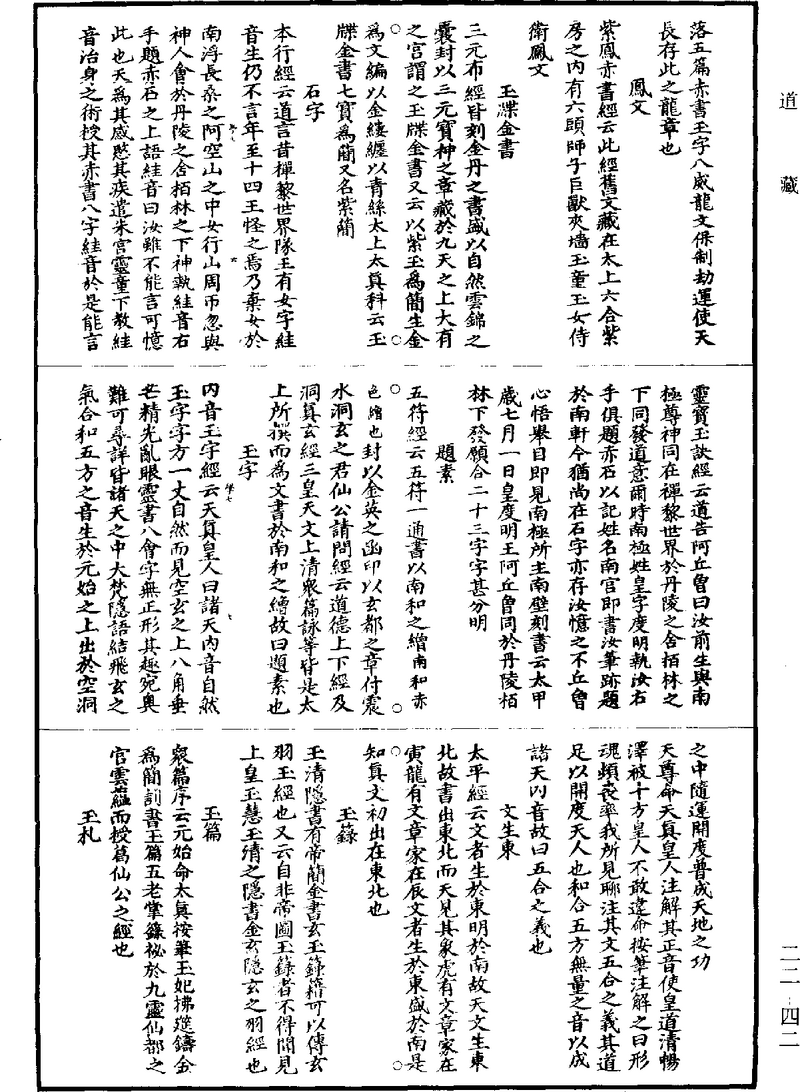 道藏
二二·四二
落五篇赤書玉字八威龍文保制劫運使天
長存此之龍章也
鳳文
紫鳳赤書經云此經舊文藏在太上六合紫
房之內有六頭師子巨獸夾墻玉童玉女侍
衛鳳文
玉牒金書
三元布經皆刻金丹之書盛以自然雲錦之
囊封以三元寶神之章藏於九天之上大有
之宮謂之玉牒金書又云以紫玉爲簡生金
爲文編以金縷纏以青絲太上太真科云玉
牒金書七寶爲簡又名紫簡
石字
本行經云道言昔禪黎世界隊王有女字絓
音生仍不言年至十四王怪之焉乃棄女於
南浮長桑之阿空山之中女行山周帀忽與
神人會於丹陵之舍栢林之下神執絓音右
手題赤石之上語絓音曰汝雖不能言可憶
此也天爲其感愍其疾遣朱宮靈童下教絓
音治身之術授其赤書八字絓音於是能言
靈寶玉訣經云道告阿丘曾曰汝前生與南
極尊神同在禪黎世界於丹陵之舍栢林之
下同發道意爾時南極姓皇字度明執汝右
手俱題赤石以記姓名南宮即書汝筆跡題
於南軒今猶尚在石字亦存汝憶之不丘曾
心悟舉目即見南極所主南壁刻書云太甲
歲七月一日皇度明王阿丘曾同於丹陵栢
林下發願合二十三字字甚分明
題素
五符經云五符一通書以南和之繒南和赤
色繒也封以金英之函印以玄都之章付震
水洞玄之君仙公請問經云道德上下經及
洞真玄經三皇天文上清衆篇詠等皆是太
上所撰而爲文書於南和之繒故曰題素也
玉字
內音玉字經云天真皇人曰諸天內音自然
玉字字方一丈自然而見空玄之上八角垂
芒精光亂眼靈書八會字無正形其趣宛奧
難可尋詳皆諸天之中大梵隱語結飛玄之
氣合和五方之音生於元始之上出於空洞
之中隨運開度普成天地之功
天尊命天真皇人注解其正音使皇道清暢
澤被十方皇人不敢違命按筆注解之曰形
魂頻喪率我所見聊注其文五合之義其道
足以開度天人也和合五方無量之音以成
諸天內音故曰五合之義也
文生東
太平經云文者生於東明於南故天文生東
北故書出東北而天見其象虎有文章家在
寅龍有文章家在辰文者生於東盛於南是
知真文初出在東北也
玉籙
玉清隱書有帝簡金書玄玉籙籍可以傳玄
羽玉經也又云自非帝圖玉籙者不得聞見
上皇玉慧玉清之隱書金玄隱玄之羽經也
玉篇
衆篇序云元始命太真按筆玉妃拂筵鑄金
爲簡刻書玉篇五老掌籙祕於九靈仙都之
官雲蘊而授葛仙公之經也
玉札